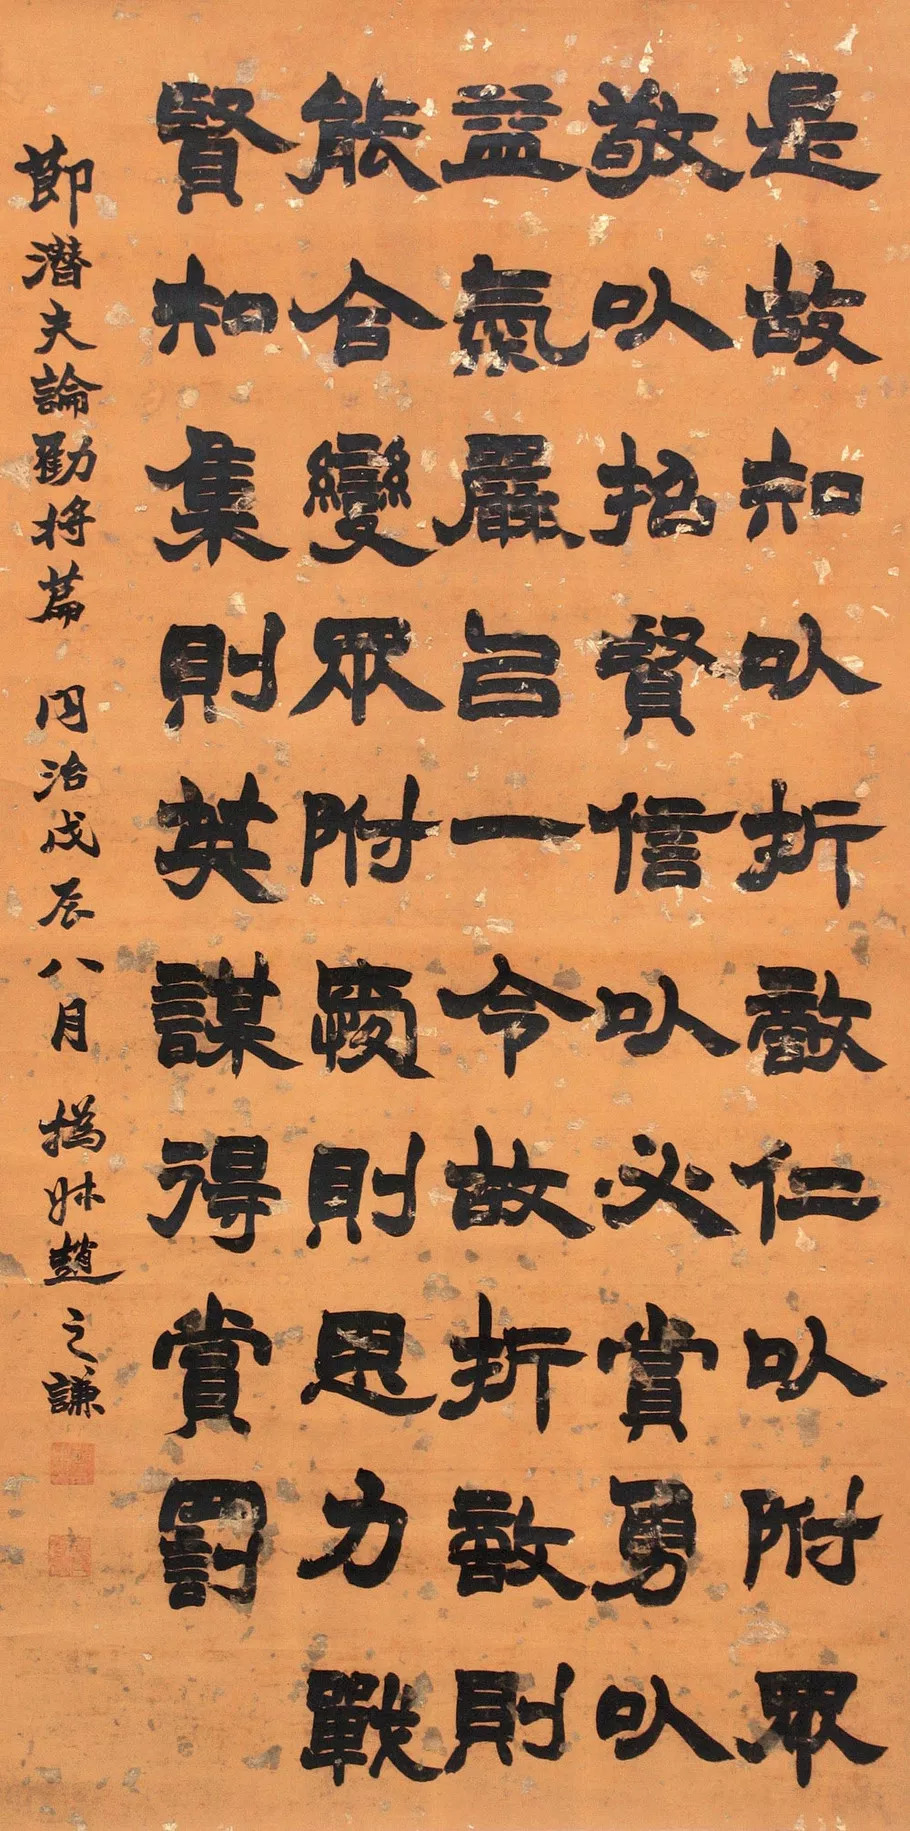 是故知以折敵仁以附眾
敬以招賢信以必賞勇以
益氣嚴以一令故折敵則
能合變眾附愛則思力戰
賢知集則英謀得賞罰
節潛夫論勸將篇 同治戊辰八月 撝叔趙之謙